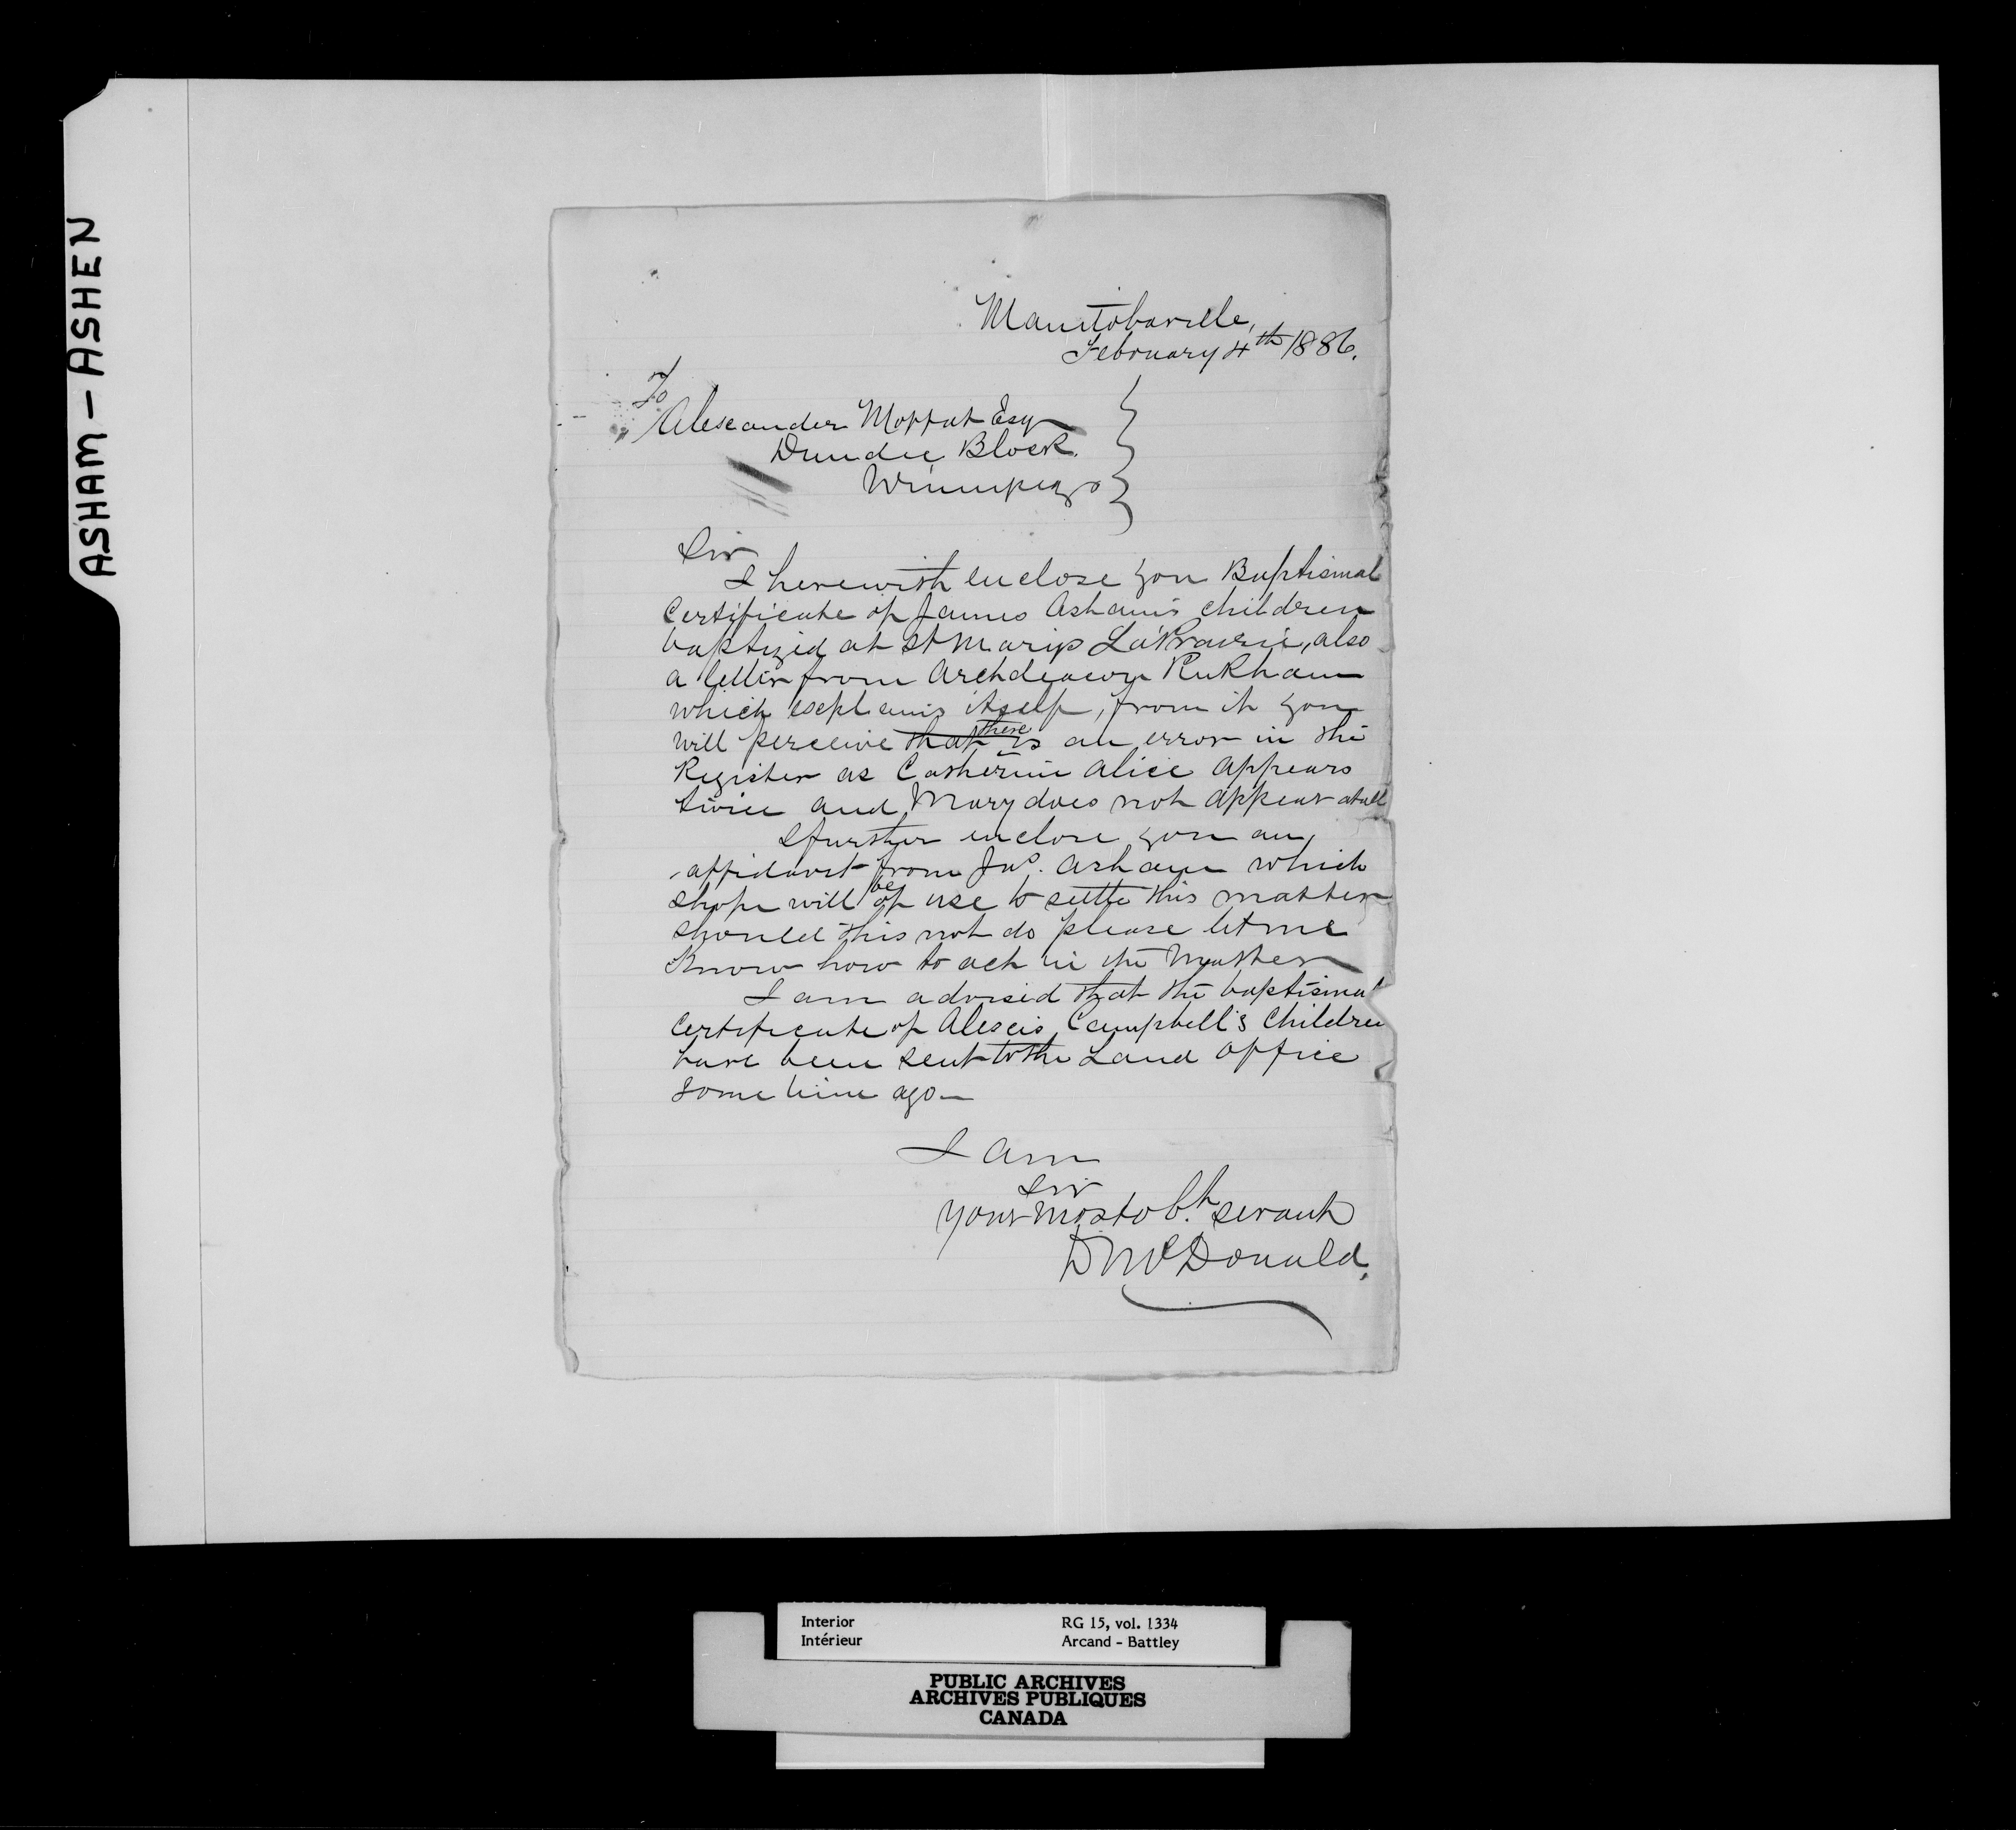 ASHAM - ASHEN
Manitobaville,
February 4th 1886.
To
Alexander Moffat Esq
Dundee Block.
Winnipeg
Sir
I herewith enclose you Baptismal
Certificate of James Asham's children
baptized at St Marys La Prairie, also
a letter from Archdeacon
which explains itself, from it you
will perceive that there is an error in the
Register as Catherine Alice appears
twice and Mary does not appear atall
I further enclose you an
affidavit from Jas. Asham which
I hope will be of use to settle this matter
should this not do please let me
know how to act in the matter
I am advised that the baptismal
Certificate of Alexis Campbell's Children
have been sent to the Land Office
some time ago—
I am
Sir
Your most obt. servant
D McDonald.
Interior RG 15, vol. 1334
Intérieur Arcand - Battley
PUBLIC ARCHIVES
ARCHIVES PUBLIQUES
CANADA